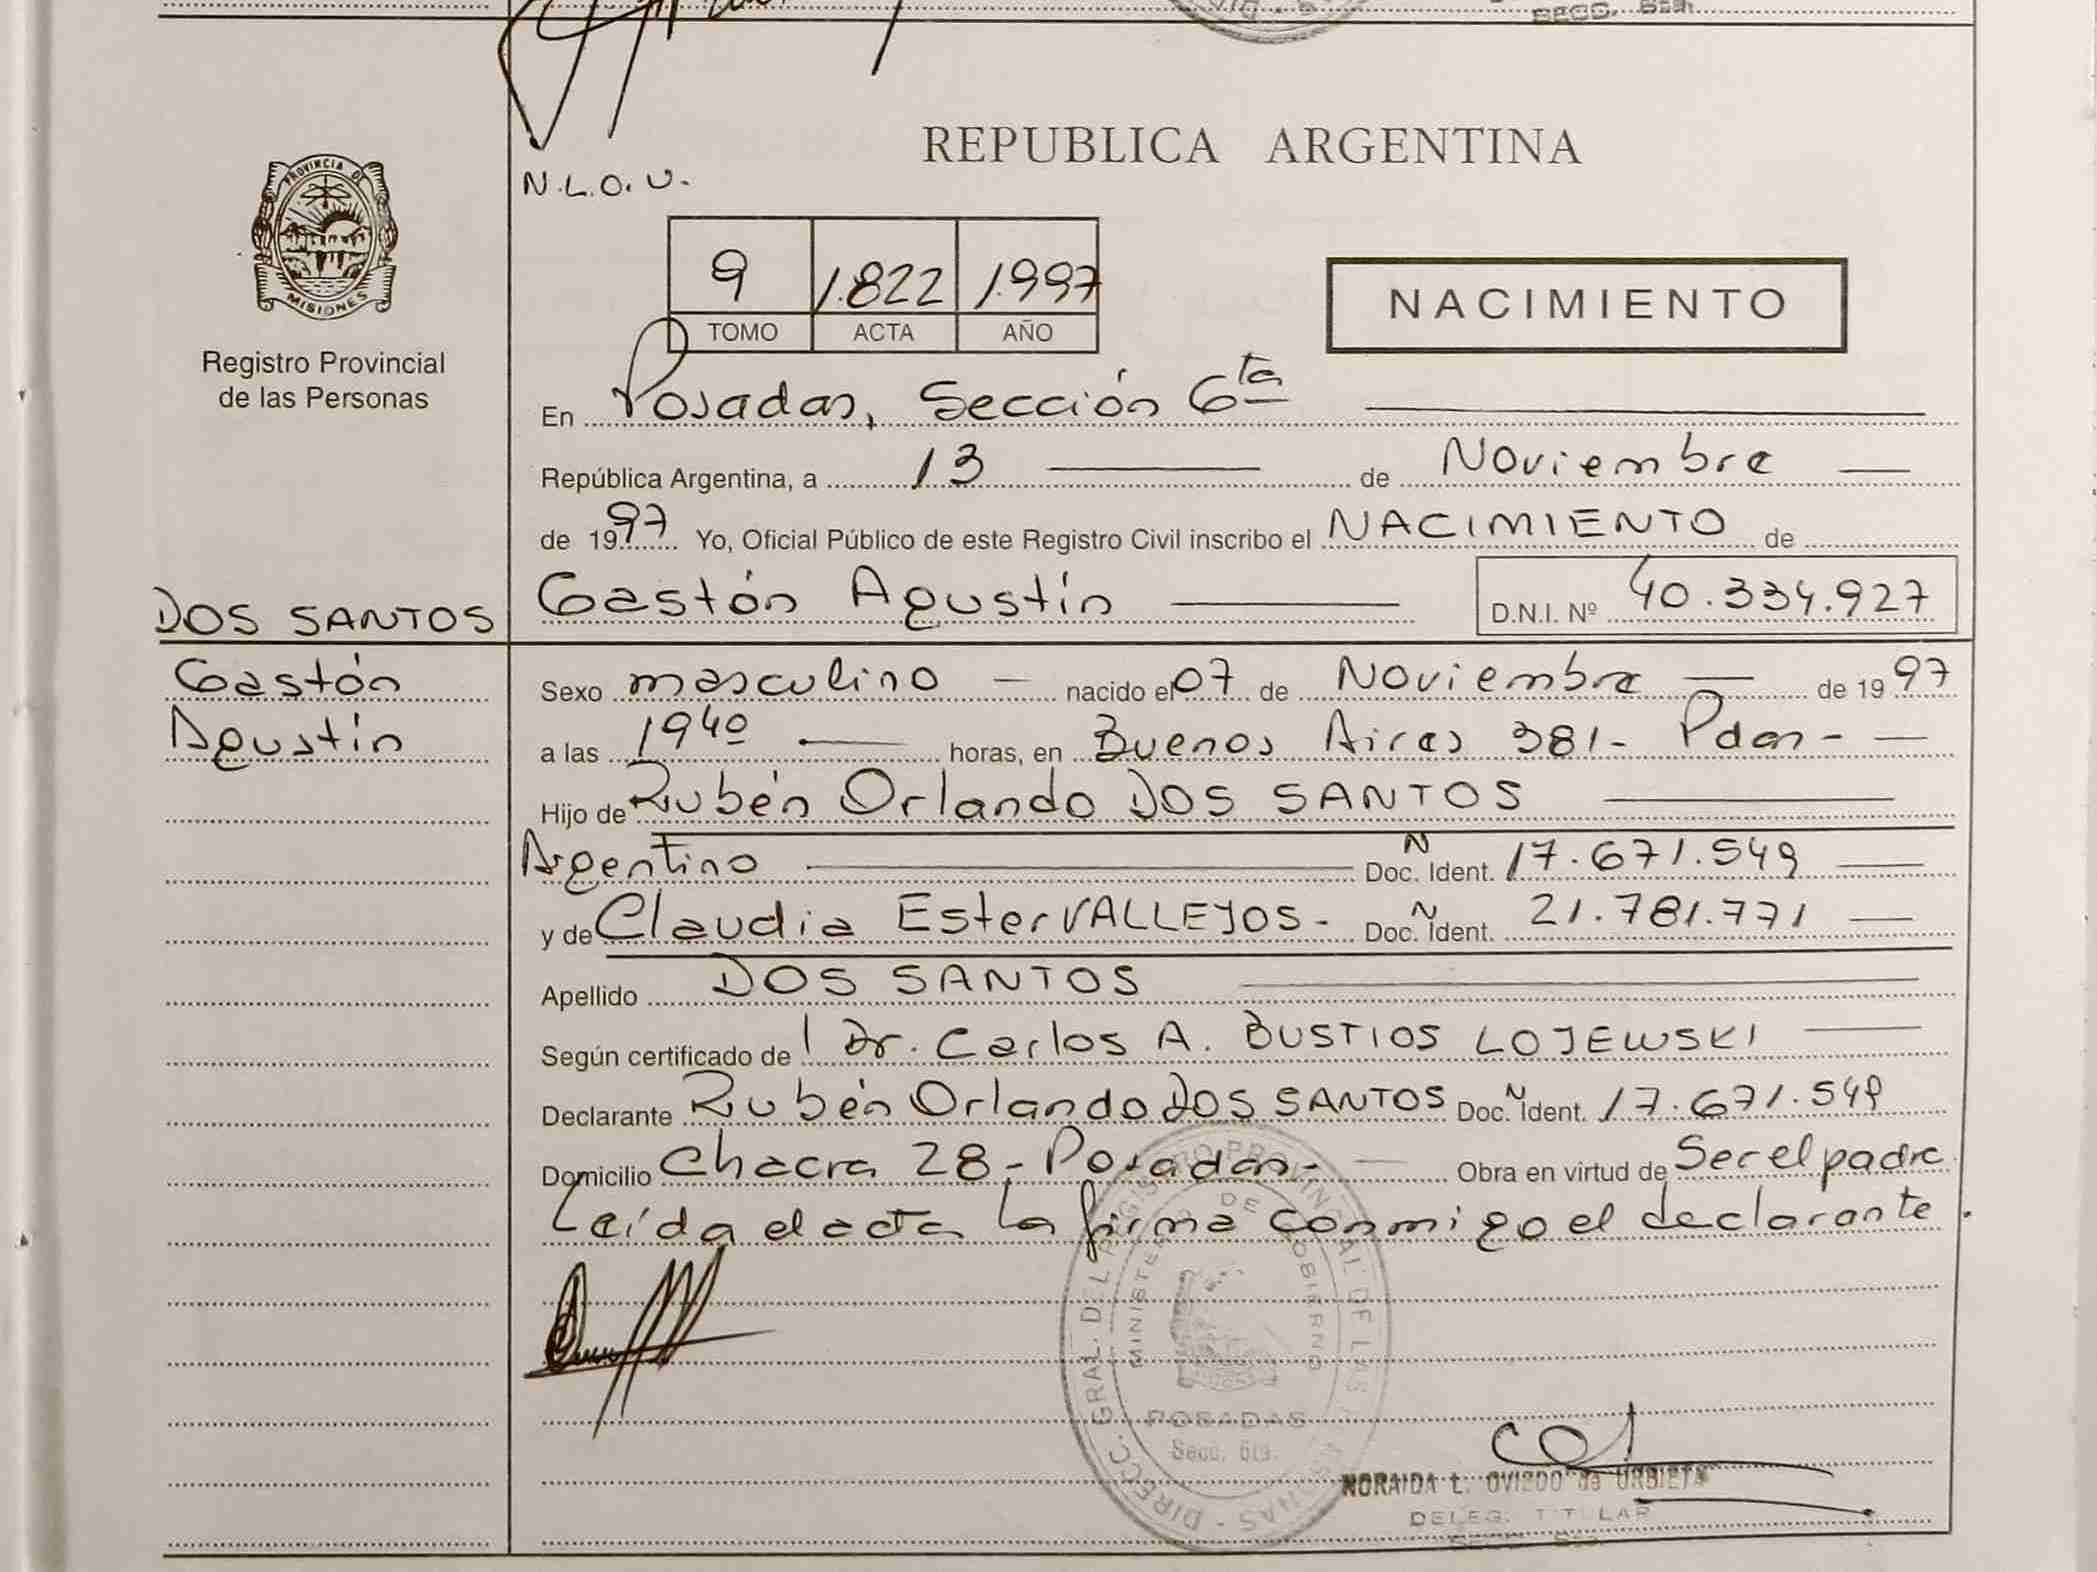 SECC. 6ta.
PROVINCIA DE
MISIONES
Registro Provincial
de las Personas
DOS SANTOS
Gastón
Agustín
N.L.O.U.
REPUBLICA ARGENTINA
9 1.822 1.997
TOMO ACTA AÑO
NACIMIENTO
En Posadas, Sección 6ta
República Argentina, a 13 de Noviembre
de 1997 Yo, Oficial Público de este Registro Civil inscribo el NACIMIENTO de
Gastón Agustín D.N.I. Nº 40.334.927
Sexo masculino nacido el 07 de Noviembre de 1997
a las 19 40 horas, en Buenos Aires 381- Pdas-
Hijo de Rubén Orlando DOS SANTOS
Argentino Doc. N Ident. 17.671.549
y de Claudia Ester VALLEJOS- Doc. N Ident. 21.781.771
Apellido DOS SANTOS
Según certificado de l Dr. Carlos A. BUSTIOS LOJEWSKI
Declarante Rubén Orlando DOS SANTOS Doc. N Ident. 17.671.549
Domicilio Chacra 28-Posadas- Obra en virtud de Ser el padre
Leída el acta la firma conmigo el declarante.
DIRECC. GRAL. DEL REGISTRO PROVINCIAL DE LAS PERSONAS
MINISTERIO DE GOBIERNO
POSADAS
Secc. 6ta.
NORAIDA L. OVIEDO de URBIETA
DELEG. TITULAR